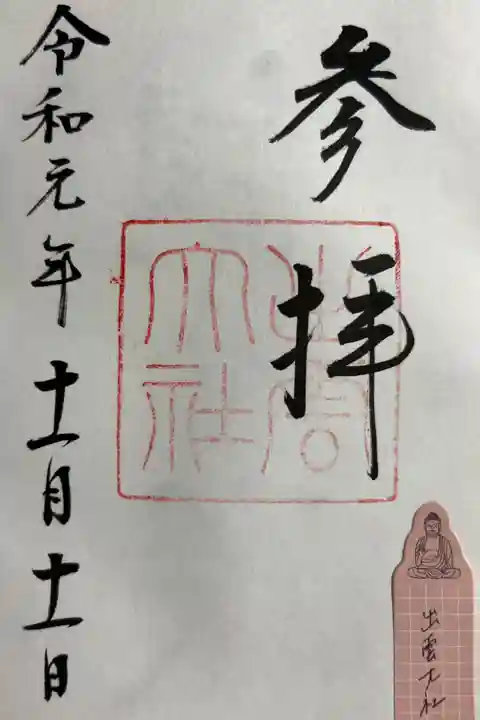 参拝
出雲
大社
令和元年十一月十一日
出雲大社